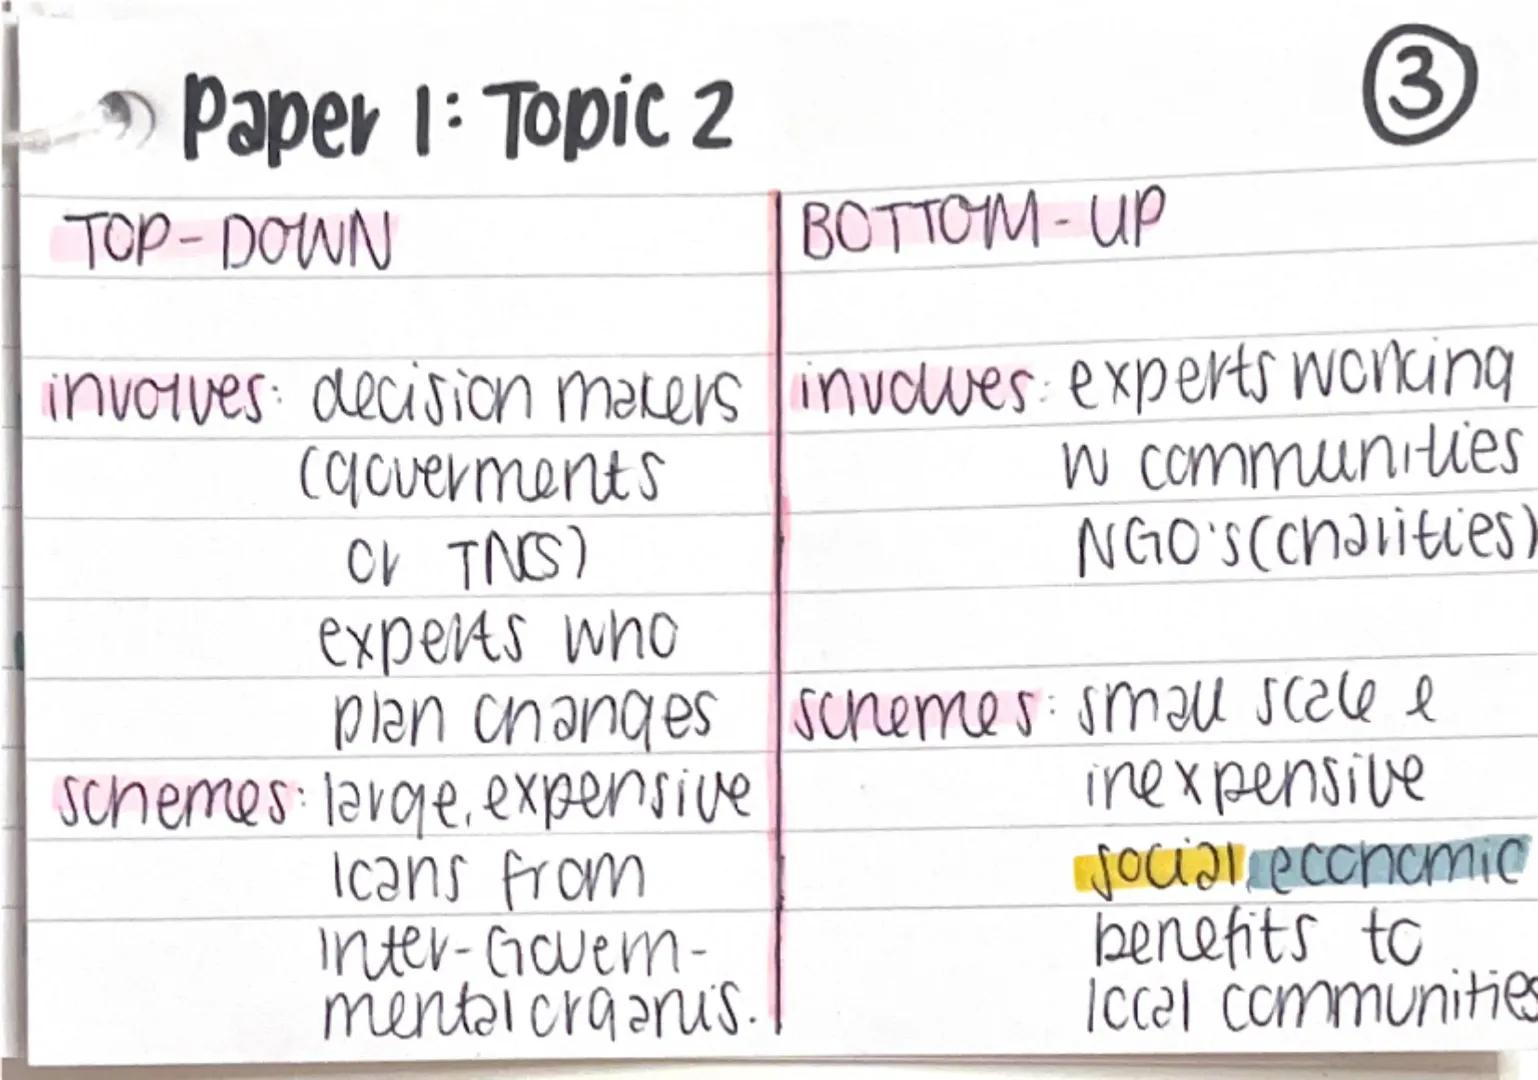 Paper 1: Topic 2
3
TOP-DOWN
involves: decision makers
(goverments
or TNCS)
experts who
plan changes
schemes: large, expensive
loans from
inter-Govern-
mental organis.
BOTTOM-UP
involves: experts working
w communities
NGO's (charities)
schemes: small scale &
inexpensive
social, economic
benefits to
local communities